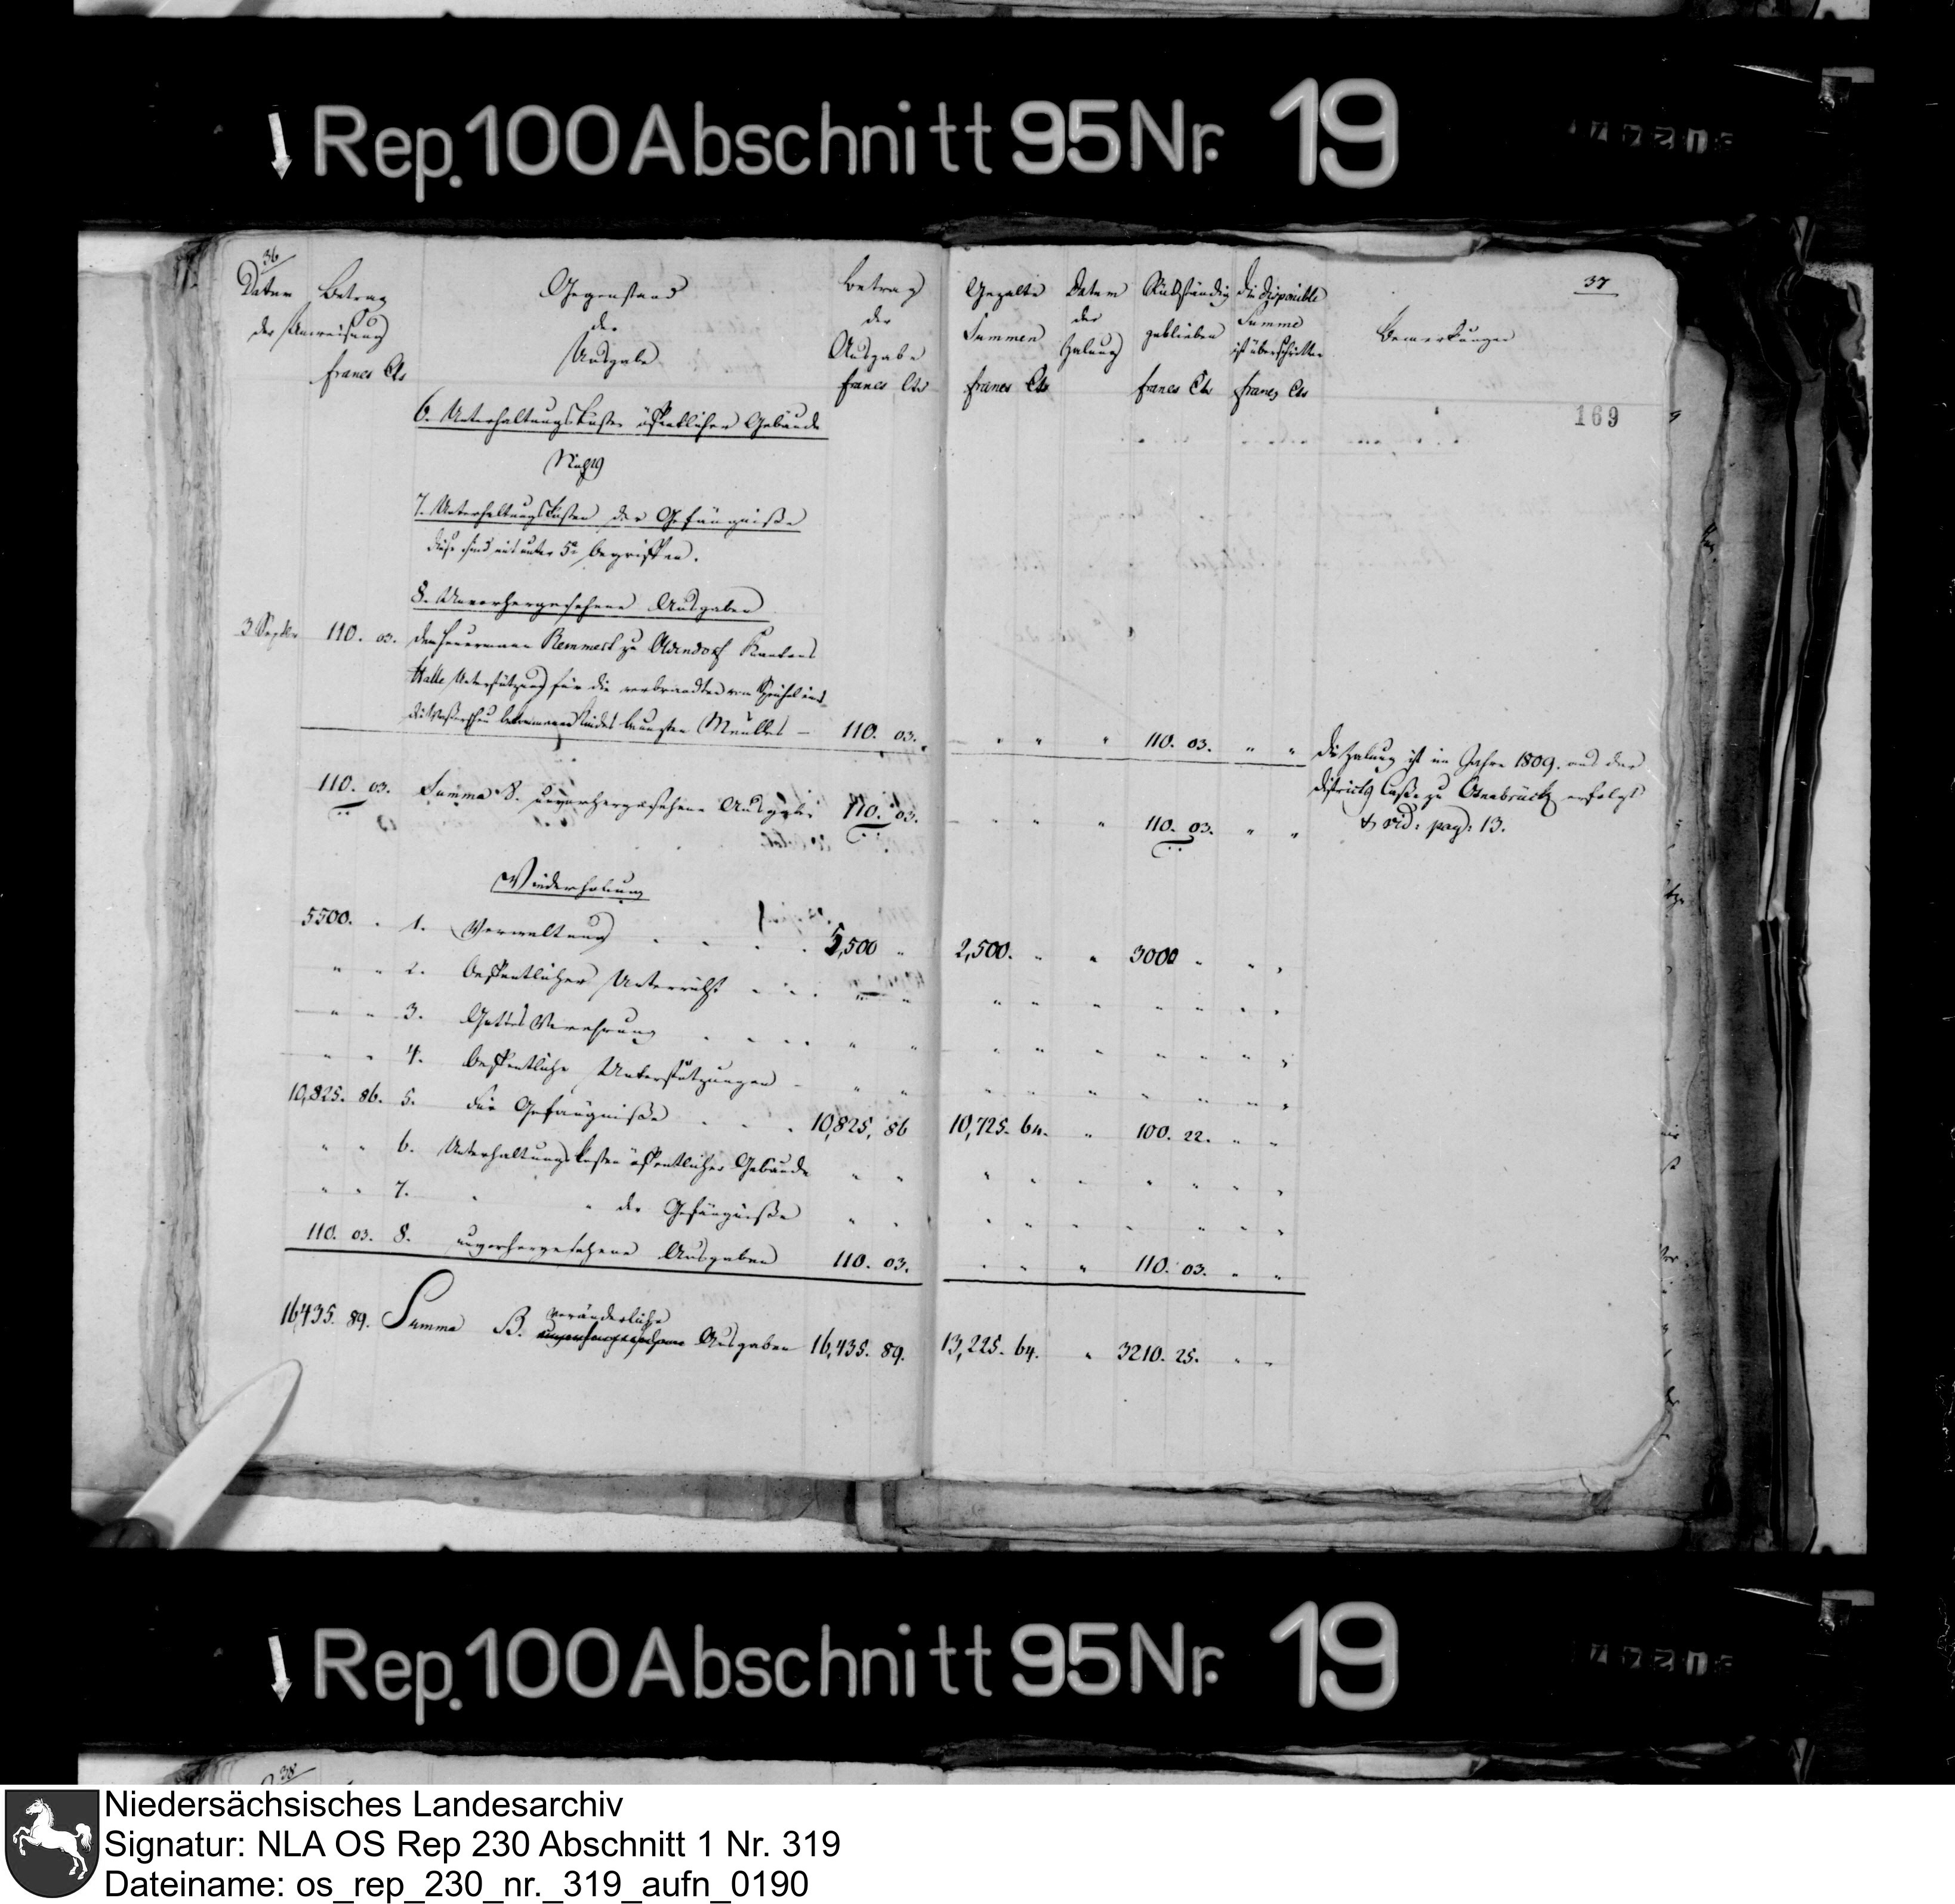 Rep. 100 Abschnitt 95 Nr. 19
36
Datum Betrag
der Anweisung
francs Cts
Gegenstand
der
Ausgabe
Betrag
der
Ausgabe
francs Cts
Gezalte
Summen
francs Cts
Datum
der
Zalung
Rückständig
geblieben
francs Cts
die disponible
Summe
ist überschritten
francs Cts
Bemerkungen
37
169
6. Unterhaltungskosten öffentlicher Gebäude
7. Unterhaltungskosten der Gefängniße
diese sind mit unter 5 begriffen.
8. Unvorhergesehene Ausgaben
3 Septbr 110. 03. dem Heuermann Remmert zu Oldendorf Kantons
Halle Unterstützung für die verbrandten vom Speichel eines
die Waßerscheu bekommenen Kindes Meubles — 110. 03. " " " 110. 03. " "
die Zalung ist im Jahre 1809. aus der
Districts Casse zu Osnabrück erfolgt
vid: pag: 13.
110. 03. Summa 8. unvorhergesehene Ausgabe 110. 03. " " " 110. 03. " "
Wiederholung
5500. " 1. Verwaltung 5,500 " 2,500. " " 3000 " " "
" " 2. Oeffentlicher Unterricht " " " " " " " " "
" " 3. Gottes Verehrung " " " " " " " " "
" " 4. Oeffentliche Unterstützungen " " " " " " " " "
10,825. 86. 5. die Gefängniße 10,825, 86 10,725. 64. " 100. 22. " "
" " 6. Unterhaltungskosten öffentlicher Gebäude " " " " " " " " "
" " 7. " " der Gefängniße " " " " " " " " "
110. 03. 8. unvorhergesehene Ausgaben 110. 03. " " " 110. 03. " "
16,435. 89. Summa B. veränderliche Ausgaben 16,435. 89. 13,225. 64. " 3210. 25. " "
Rep. 100 Abschnitt 95 Nr. 19
38
Niedersächsisches Landesarchiv
Signatur: NLA OS Rep 230 Abschnitt 1 Nr. 319
Dateiname: os_rep_230_nr._319_aufn_0190